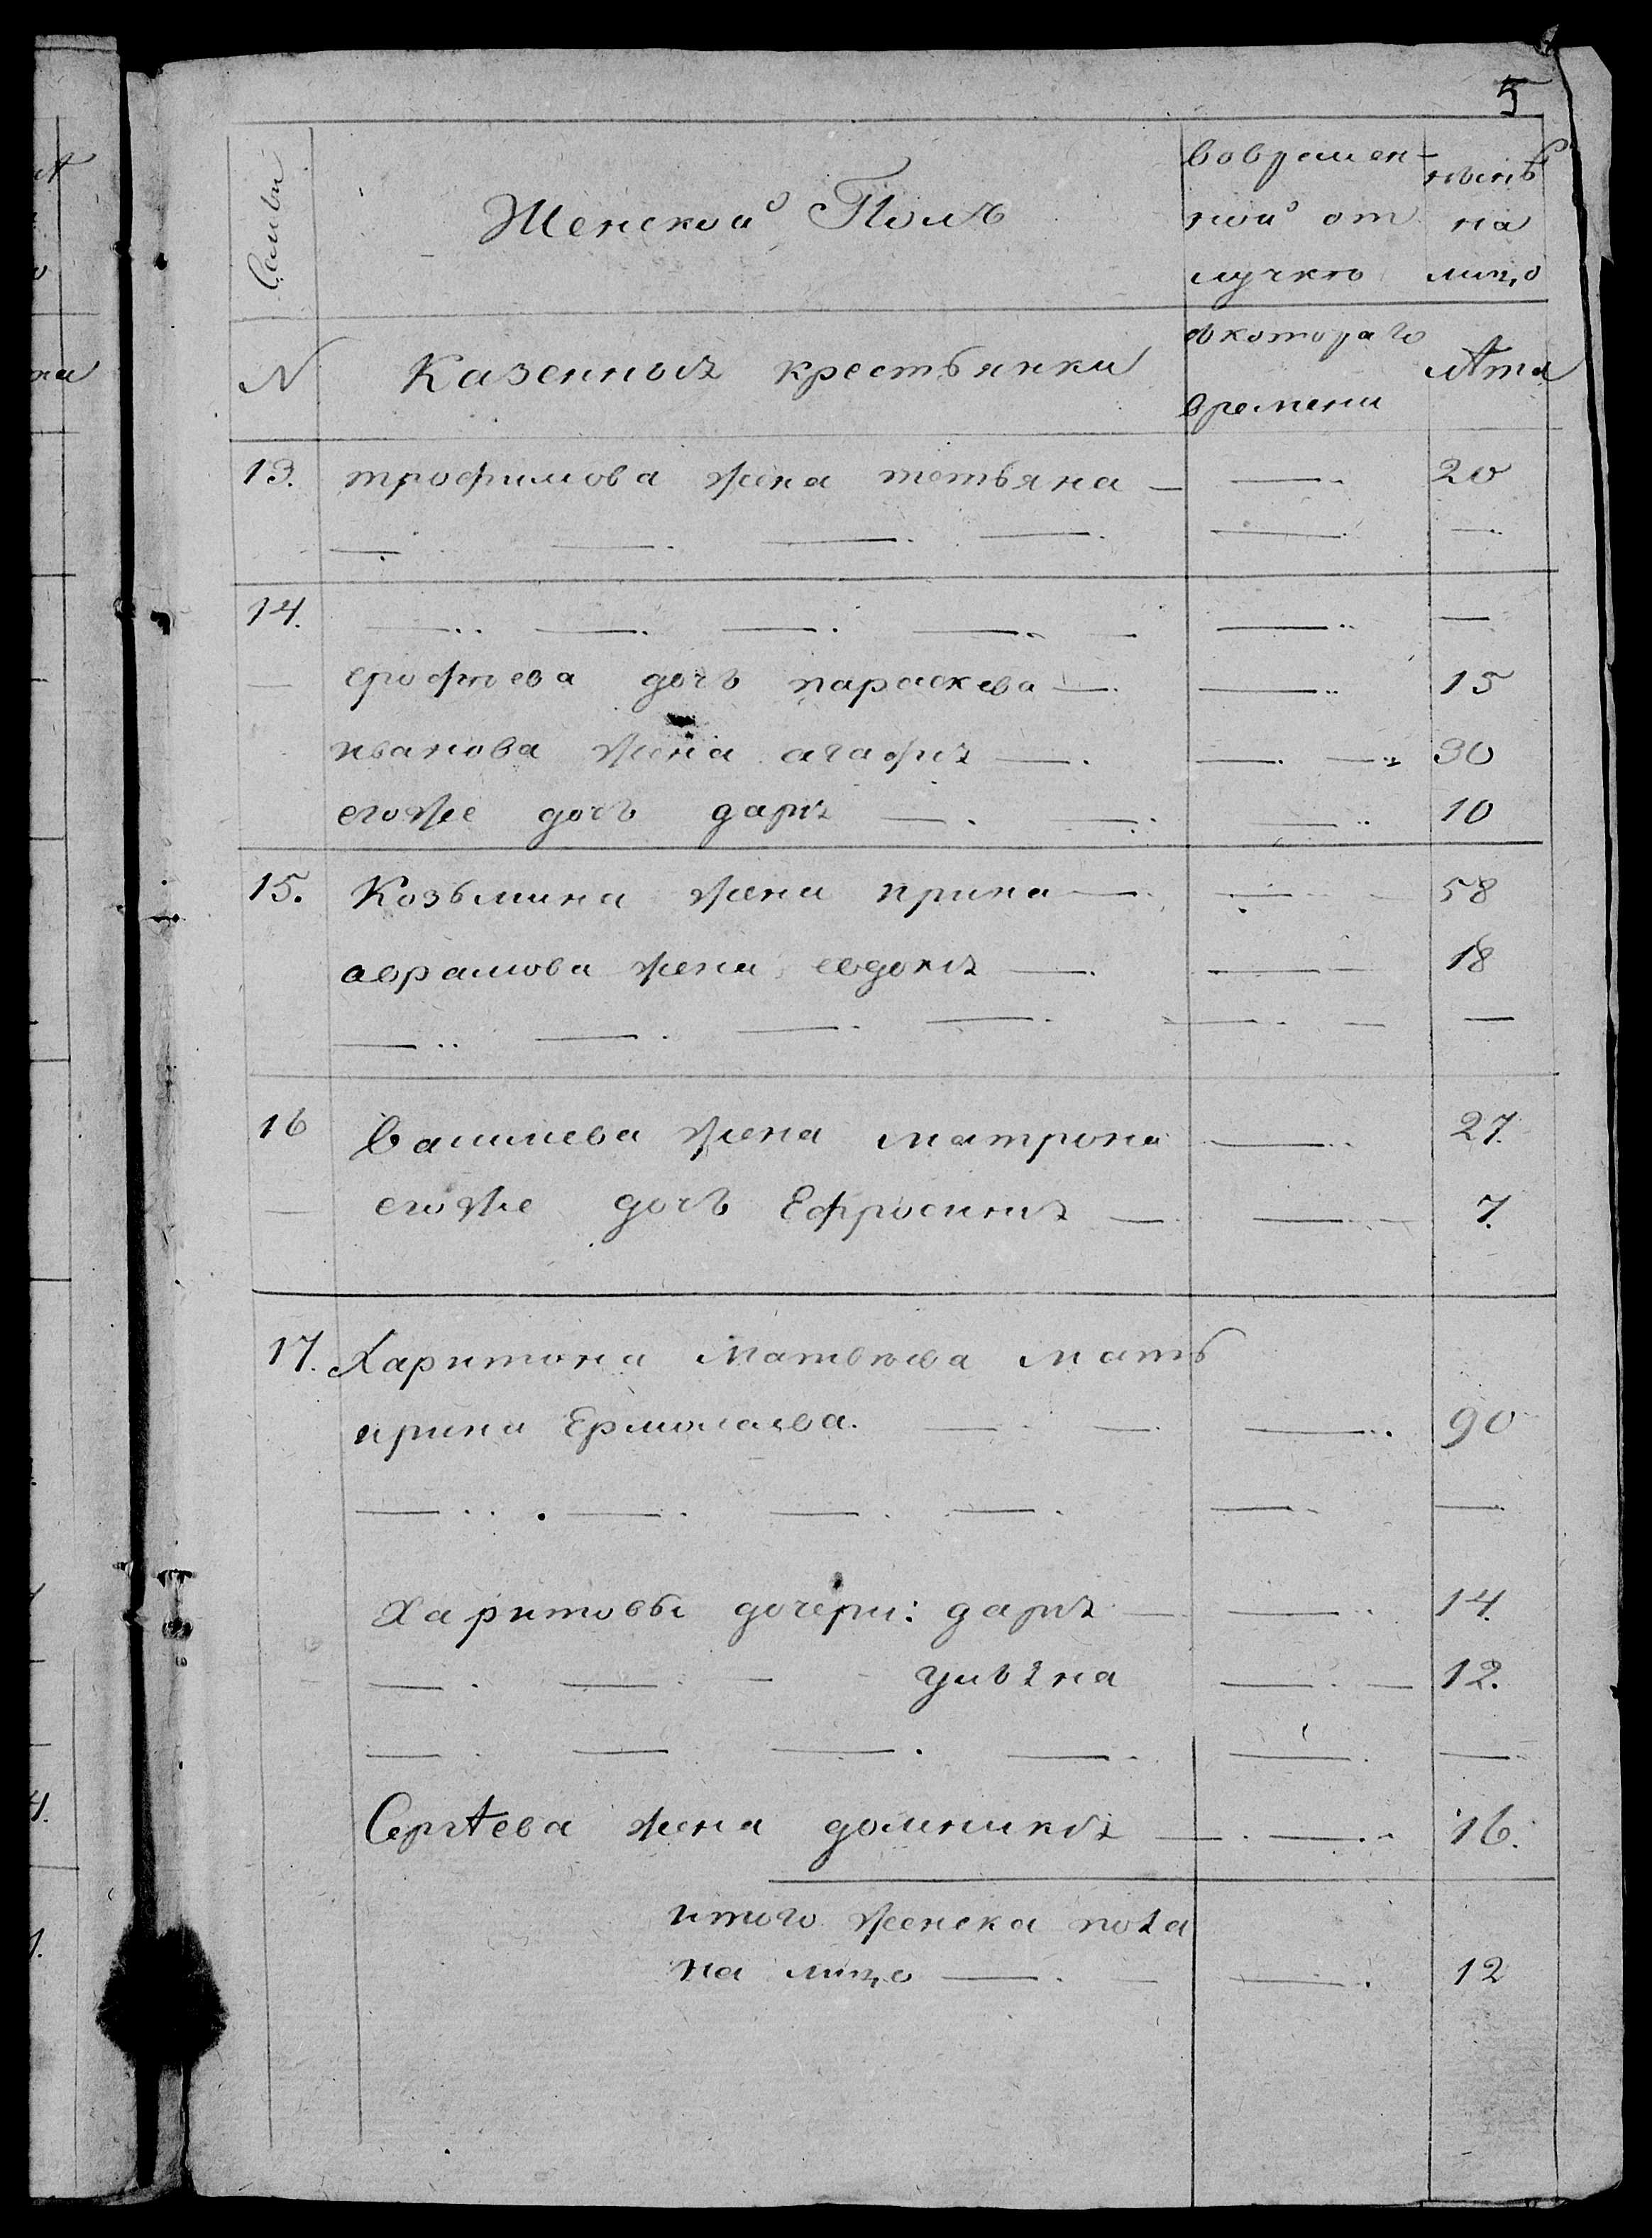 5
Семьи
Женской Полъ
вовремен-
ной от
лучке
ныне
на
лицо
N
Казенныя крестьянки
с котораго
времени
лѣта
13. трофимова жена тетьяна — — 20
14. — — — — — —
ерофеева дочь параскева — — 15
иванова жена агафия — — 30
егоже дочь дария — — 10
15. Козьмина жена ирина — — 58
аврамова жена евдокия — — 18
16 Василиева жена матрона — 27.
егоже дочь Ефросиния — — 7.
17. Харитона Матвеева мать
ирина Ермолаева. — — — 90
Харитовы дочери: дария — — 14.
— — — улияна — 12.
Сергѣева жена домникия — — 16.
итого женска пола
на лицо — — — 12